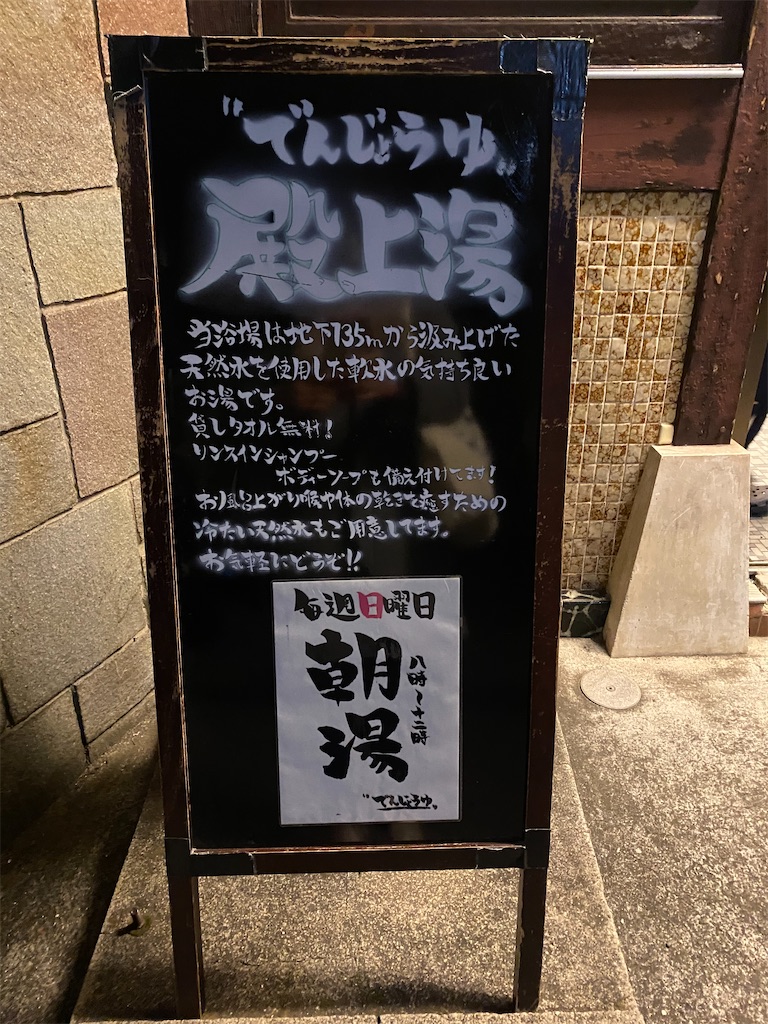 "でんじょうゆ„
殿上湯
当浴場は地下135mから汲み上げた
天然水を使用した軟水の気持ち良い
お湯です。
貸しタオル無料!
リンスインシャンプー
ボディーソープも備え付けてます!
お風呂上がり喉や体の乾きを癒すための
冷たい天然水もご用意してます。
お気軽にどうぞ!!
毎週日曜日
朝湯
八時~十二時
"でんじょうゆ„